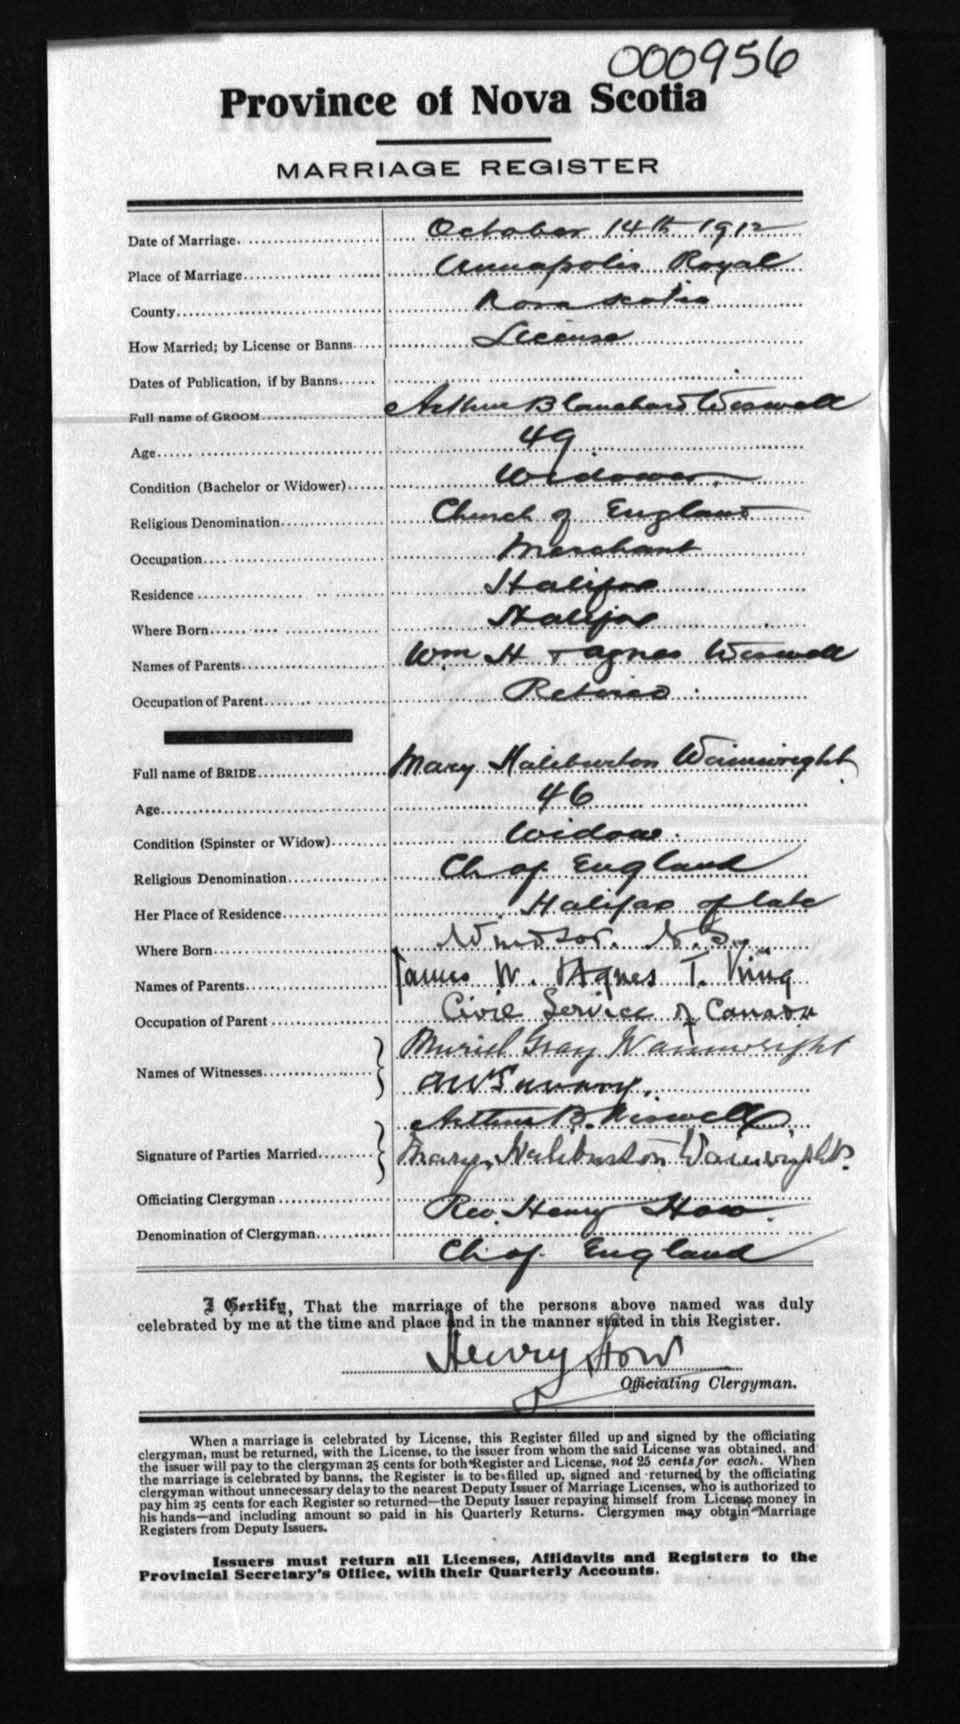 000956
Province of Nova Scotia
MARRIAGE REGISTER
Date of Marriage. October 14th 1912
Place of Marriage Annapolis Royal
County Nova Scotia
How Married; by License or Banns License
Dates of Publication, if by Banns
Full name of GROOM Arthur Blanchard Wiswell
Age 49
Condition (Bachelor or Widower) Widower.
Religious Denomination Church of England
Occupation Merchant
Residence Halifax
Where Born Halifax
Names of Parents Wm H + Agnes Wiswell
Occupation of Parent Retired
Full name of BRIDE Mary Haliburton Wainwright
Age 46
Condition (Spinster or Widow) Widow.
Religious Denomination Ch of England
Her Place of Residence Halifax of late
Where Born Windsor. N.S.
Names of Parents James W. + Agnes T. King
Occupation of Parent Civil Service of Canada
Names of Witnesses Muriel Gray Wainwright
Savary.
Arthur B. Wiswell
Signature of Parties Married Mary Haliburton Wainwright.
Officiating Clergyman Rev. Henry How.
Denomination of Clergyman Ch of England
I Certify, That the marriage of the persons above named was duly
celebrated by me at the time and place and in the manner stated in this Register.
Henry How
Officiating Clergyman.
When a marriage is celebrated by License, this Register filled up and signed by the officiating
clergyman, must be returned, with the License, to the issuer from whom the said License was obtained, and
the issuer will pay to the clergyman 25 cents for both Register and License, not 25 cents for each. When
the marriage is celebrated by banns, the Register is to be filled up, signed and returned by the officiating
clergyman without unnecessary delay to the nearest Deputy Issuer of Marriage Licenses, who is authorized to
pay him 25 cents for each Register so returned—the Deputy Issuer repaying himself from License money in
his hands—and including amount so paid in his Quarterly Returns. Clergymen may obtain Marriage
Registers from Deputy Issuers.
Issuers must return all Licenses, Affidavits and Registers to the
Provincial Secretary's Office, with their Quarterly Accounts.